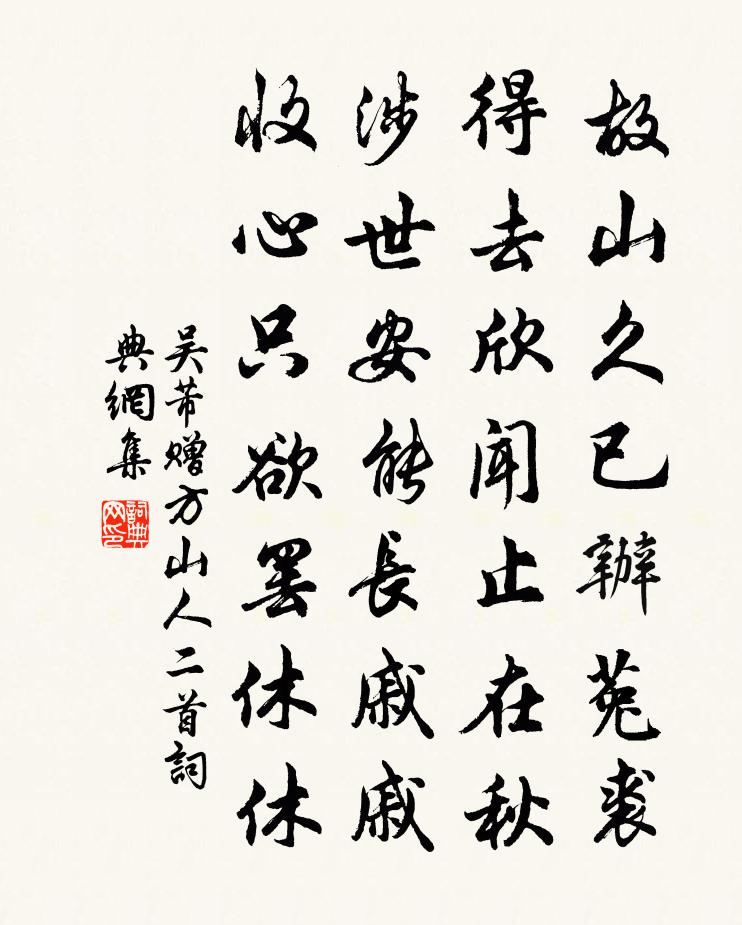 故山久已辦菟裘
得去欣聞止在秋
涉世安能長戚戚
收心只欲罷休休
吴芾赠方山人二首詞
典網集
詞典网印